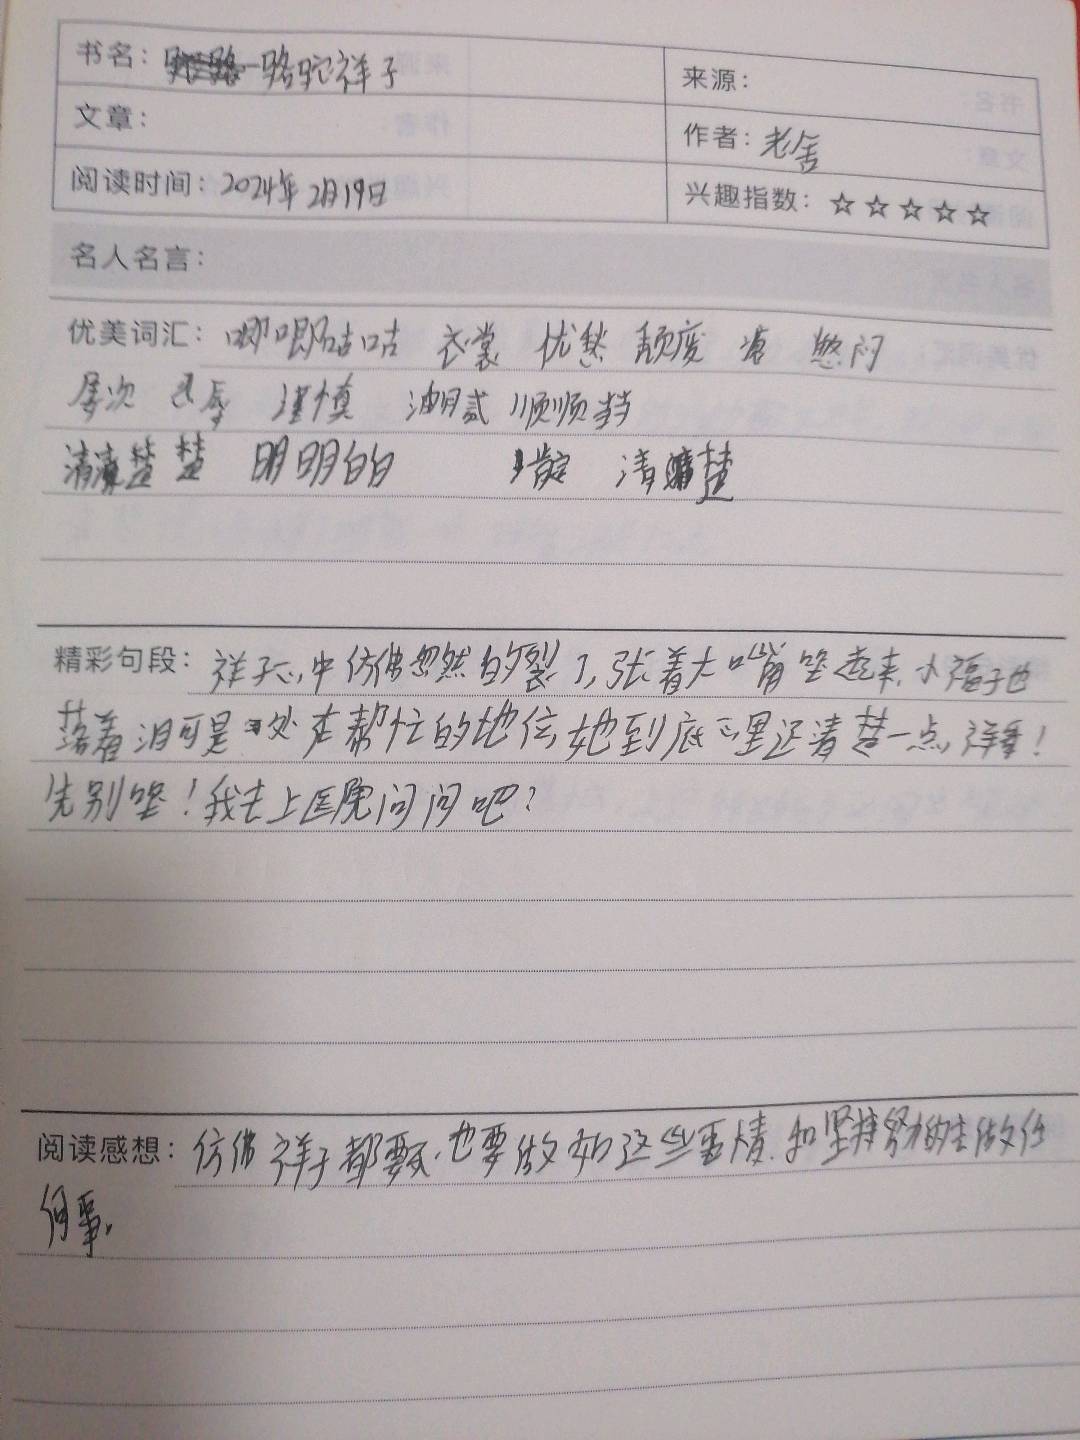 书名：骆驼祥子
来源：
文章：
作者：老舍
阅读时间：2024年2月19日
兴趣指数：☆☆☆☆☆
名人名言：
优美词汇：唧唧咕咕 衣裳 忧愁 颓废 凄 愁闷
屡次 忍辱 谨慎 油腻 顺顺当当
清清楚楚 明明白白 肯定 清楚
精彩句段：祥子心中仿佛忽然的裂了,张着大嘴哭起来.小福子也
落着泪可是处在帮忙的地位,她到底心里还清楚一点,祥哥！
先别哭！我去上医院问问吧？
阅读感想：仿佛祥子都要.也要做如这些事情.和坚持努力的去做任
何事.